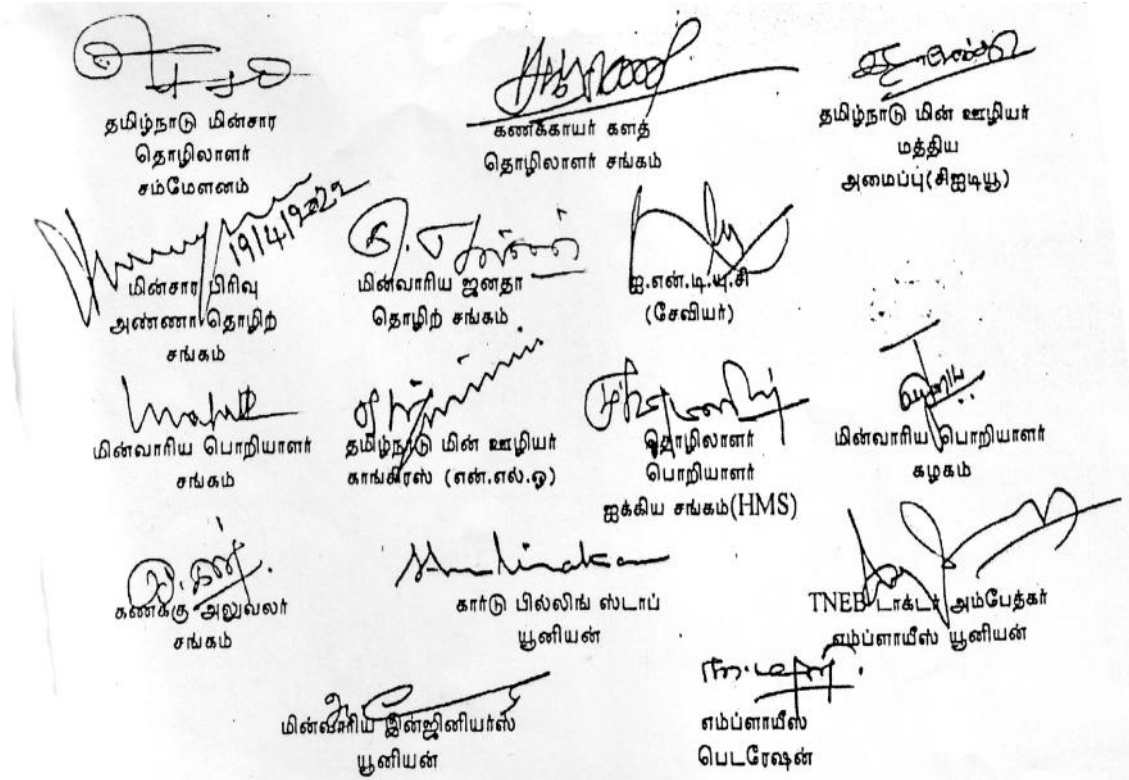 தமிழ்நாடு மின்சார
தொழிலாளர்
சம்மேளனம்
கணக்காயர் களத்
தொழிலாளர் சங்கம்
தமிழ்நாடு மின் ஊழியர்
மத்திய
அமைப்பு(சிஐடியூ)
19/4/2022
மின்சார பிரிவு
அண்ணா தொழிற்
சங்கம்
மின்வாரிய ஜனதா
தொழிற் சங்கம்
ஐ.என்.டி.யு.சி
(சேவியர்)
மின்வாரிய பொறியாளர்
சங்கம்
தமிழ்நாடு மின் ஊழியர்
காங்கிரஸ் (என்.எல்.ஓ)
தொழிலாளர்
பொறியாளர்
ஐக்கிய சங்கம்(HMS)
மின்வாரிய பொறியாளர்
கழகம்
கணக்கு அலுவலர்
சங்கம்
கார்டு பில்லிங் ஸ்டாப்
யூனியன்
TNEB டாக்டர் அம்பேத்கர்
எம்ப்ளாயீஸ் யூனியன்
மின்வாரிய இன்ஜினியர்ஸ்
யூனியன்
எம்ப்ளாயீஸ்
பெடரேஷன்